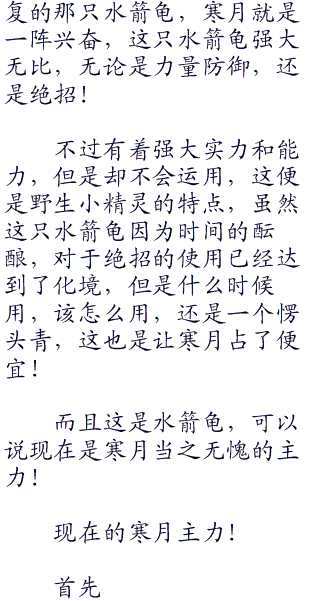 复的那只水箭龟，寒月就是
一阵兴奋，这只水箭龟强大
无比，无论是力量防御，还
是绝招！
不过有着强大实力和能
力，但是却不会运用，这便
是野生小精灵的特点，虽然
这只水箭龟因为时间的酝
酿，对于绝招的使用已经达
到了化境，但是什么时候
用，该怎么用，还是一个愣
头青，这也是让寒月占了便
宜！
而且这是水箭龟，可以
说现在是寒月当之无愧的主
力！
现在的寒月主力！
首先